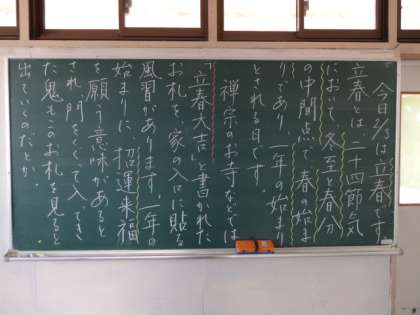 今日2/3は立春です。
立春とは、二十四節気
において、冬至と春分
の中間点で春の始ま
りであり、一年の始まり
とされる日です。
禅宗のお寺などでは
「立春大吉」と書かれた
お札を、家の入口に貼る
風習があります。一年の
始まりに、招運来福
を願う意味があると
され、門をくぐって入ってき
た鬼もこのお札を見ると
出ていくのだとか。